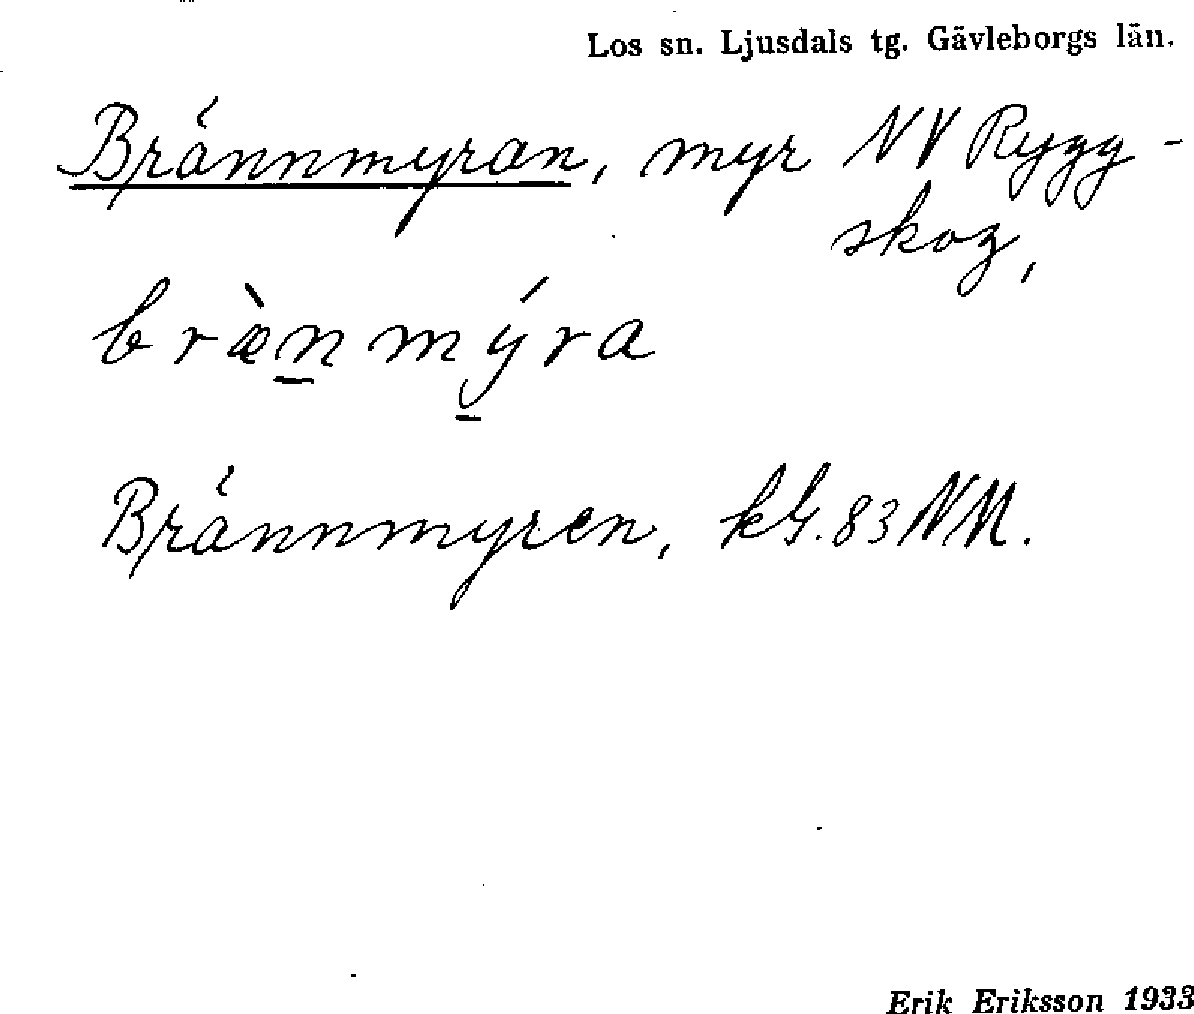 Los sn. Ljusdals tg. Gävleborgs län.
Brännmyran, myr NV Rygg-
skog,
bræ̀nmýra
Brännmyren, kG. 83 NM.
Erik Eriksson 1933